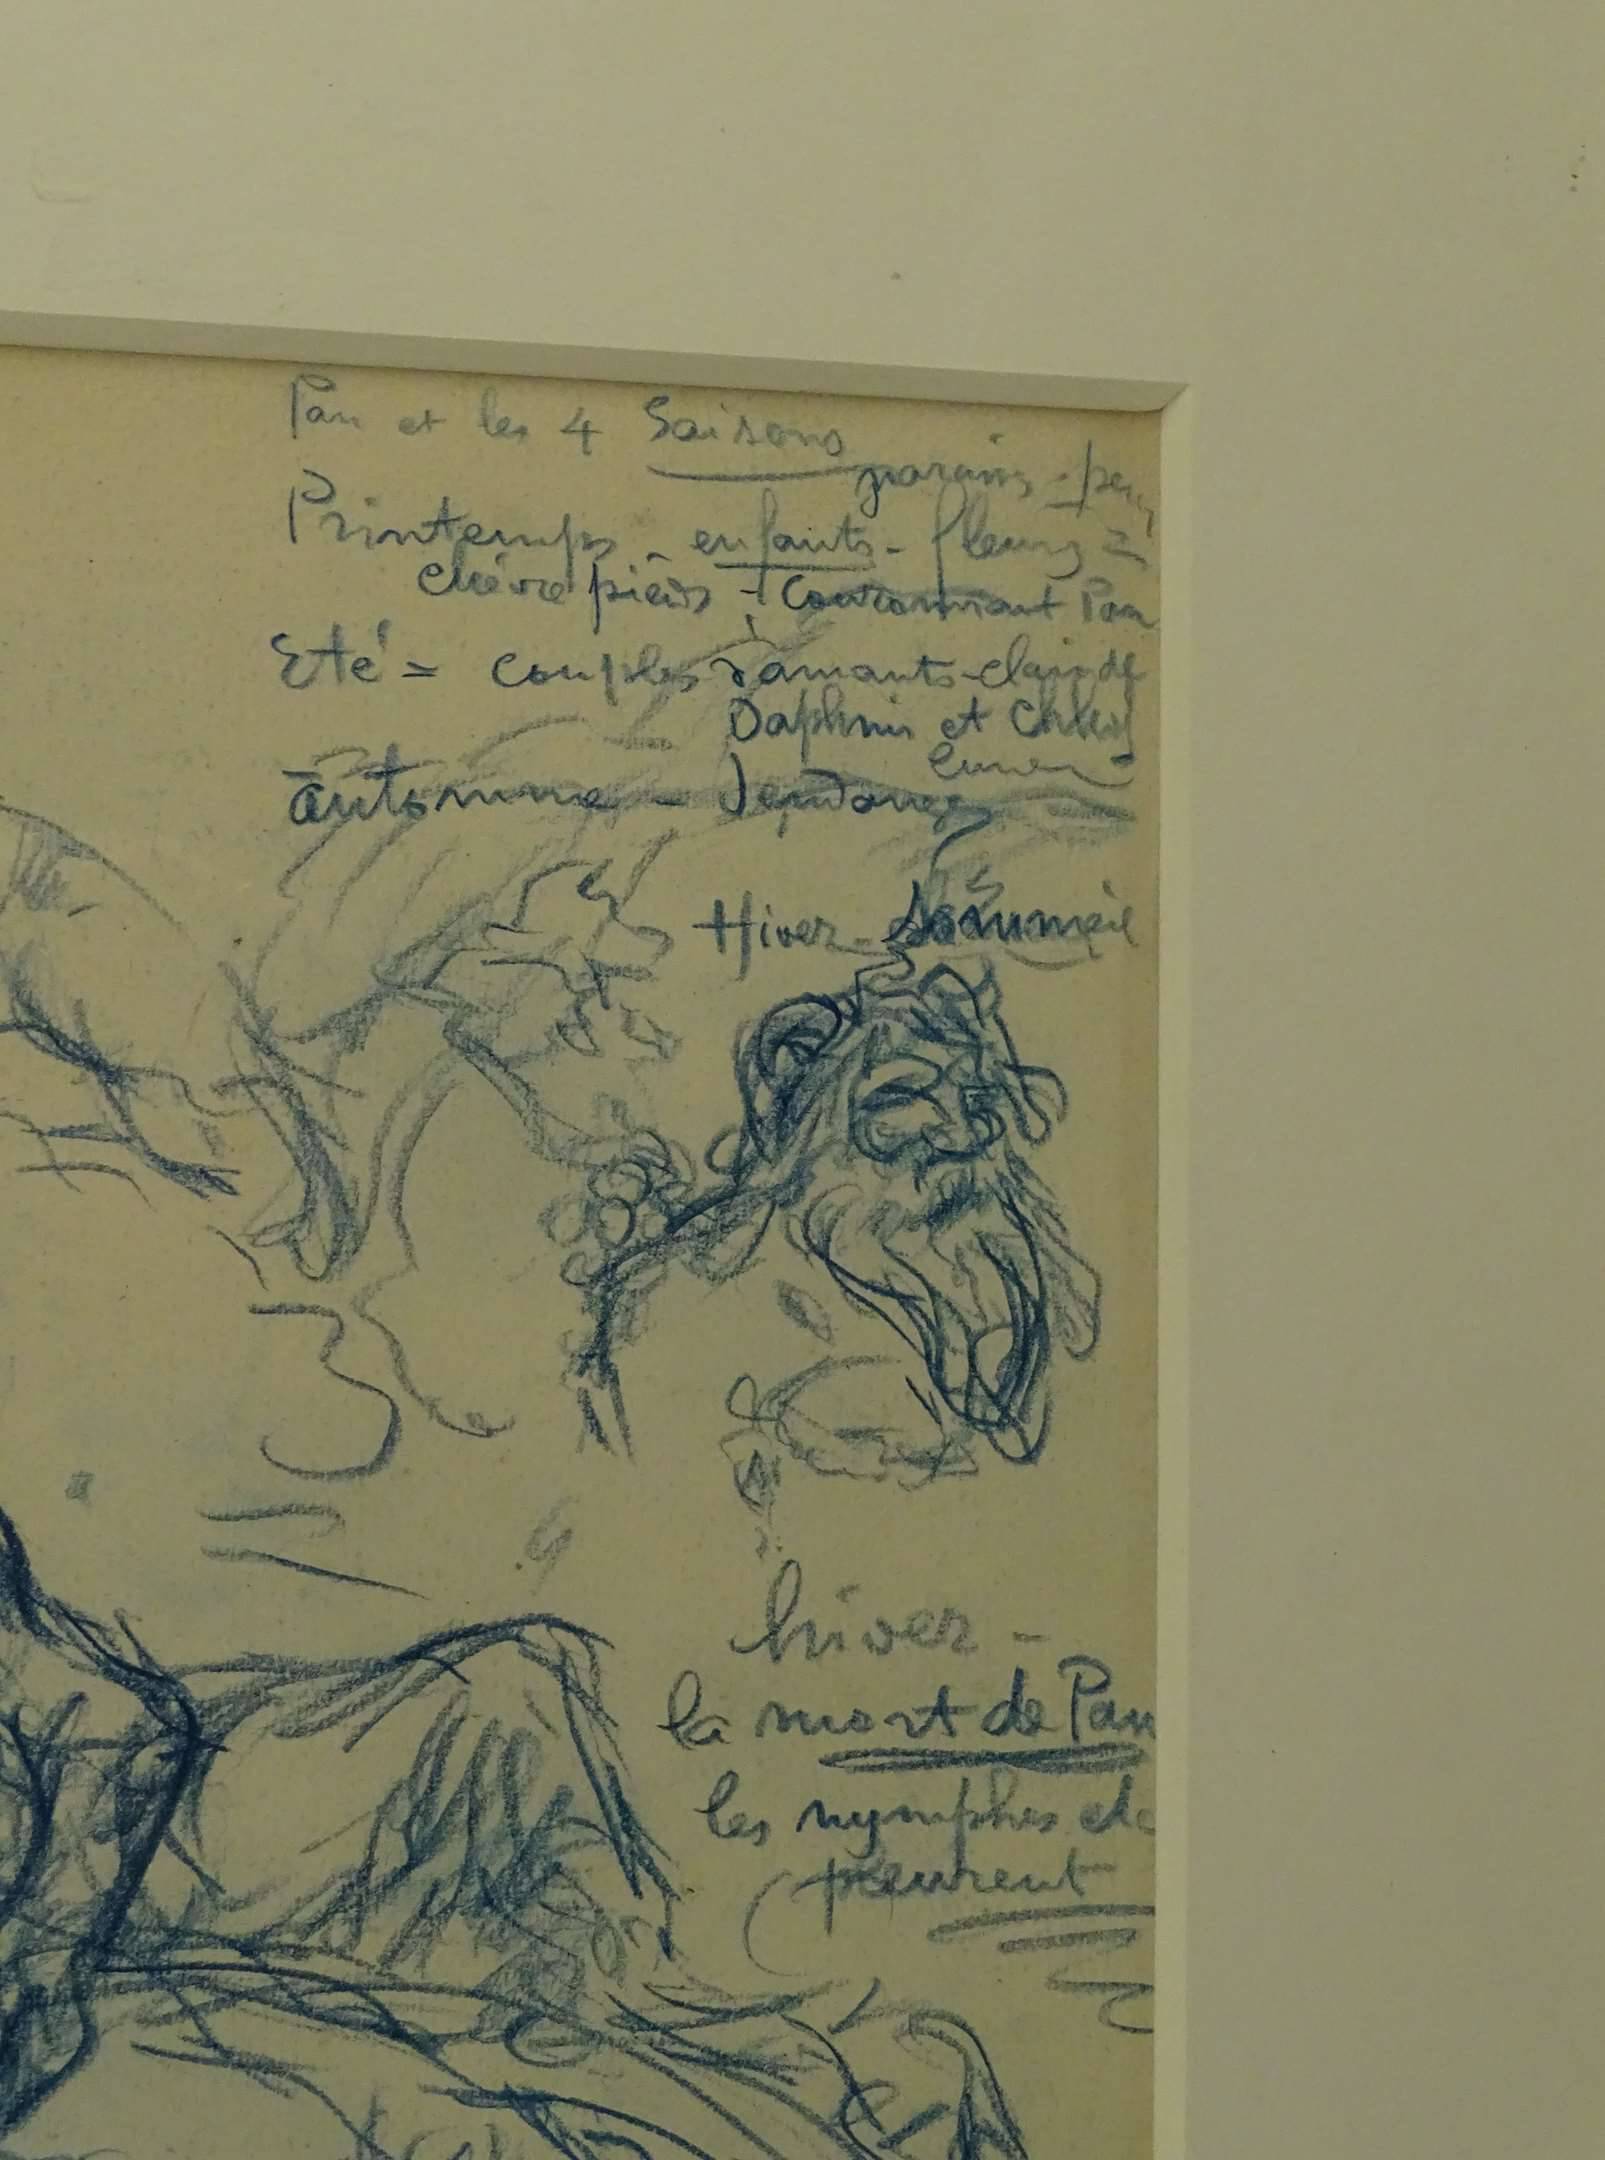 Pan et les 4 Saisons
Printemps - enfants - fleurs
chèvre pieds - couronnant Pan
Eté = couples d'amants - clair de
Daphnis et Chloé
lune
automne - Vendanges
Hiver - Sommeil
hiver -
la mort de Pan
les nymphes etc
pleurent